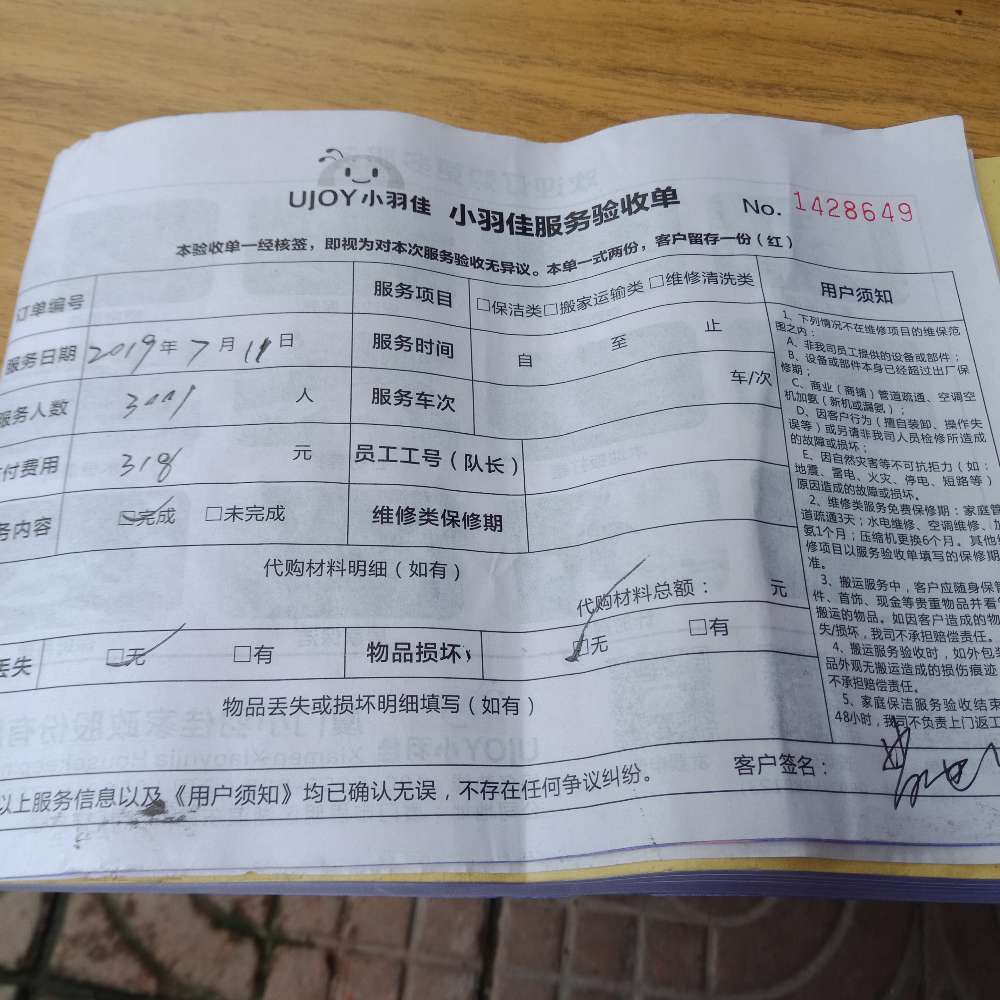 UJOY小羽佳 小羽佳服务验收单 No. 1428649
本验收单一经核签，即视为对本次服务验收无异议。本单一式两份，客户留存一份（红）
订单编号 服务项目 □保洁类□搬家运输类 □维修清洗类
服务日期 2019年7月11日 服务时间 自 至 止
服务人数 人 服务车次 车/次
付费用 318 元 员工工号（队长）
务内容 ☑完成 □未完成 维修类保修期
代购材料明细（如有）
代购材料总额： 元
丢失 ☑无 □有 物品损坏 ☑无 □有
物品丢失或损坏明细填写（如有）
以上服务信息以及《用户须知》均已确认无误，不存在任何争议纠纷。 客户签名：
用户须知
1、下列情况不在维修项目的维保范
围之内：
A、非我司员工提供的设备或部件；
B、设备或部件本身已经超过出厂保
修期；
C、商业（商铺）管道疏通、空调空
机加氨（新机或漏氨）；
D、因客户行为（擅自装卸、操作失
误等）或另请非我司人员检修所造成
的故障或损坏；
E、因自然灾害等不可抗拒力（如：
地震、雷电、火灾、停电、短路等）
原因造成的故障或损坏。
2、维修类服务免费保修期：家庭管
道疏通3天；水电维修、空调维修、加
氨1个月；压缩机更换6个月。其他
修项目以服务验收单填写的保修期
准。
3、搬运服务中，客户应随身保管
件、首饰、现金等贵重物品并看
搬运的物品。如因客户造成的物
失/损坏，我司不承担赔偿责任。
4、搬运服务验收时，如外包装
品外观无搬运造成的损伤痕迹
不承担赔偿责任。
5、家庭保洁服务验收结束
48小时，我司不负责上门返工